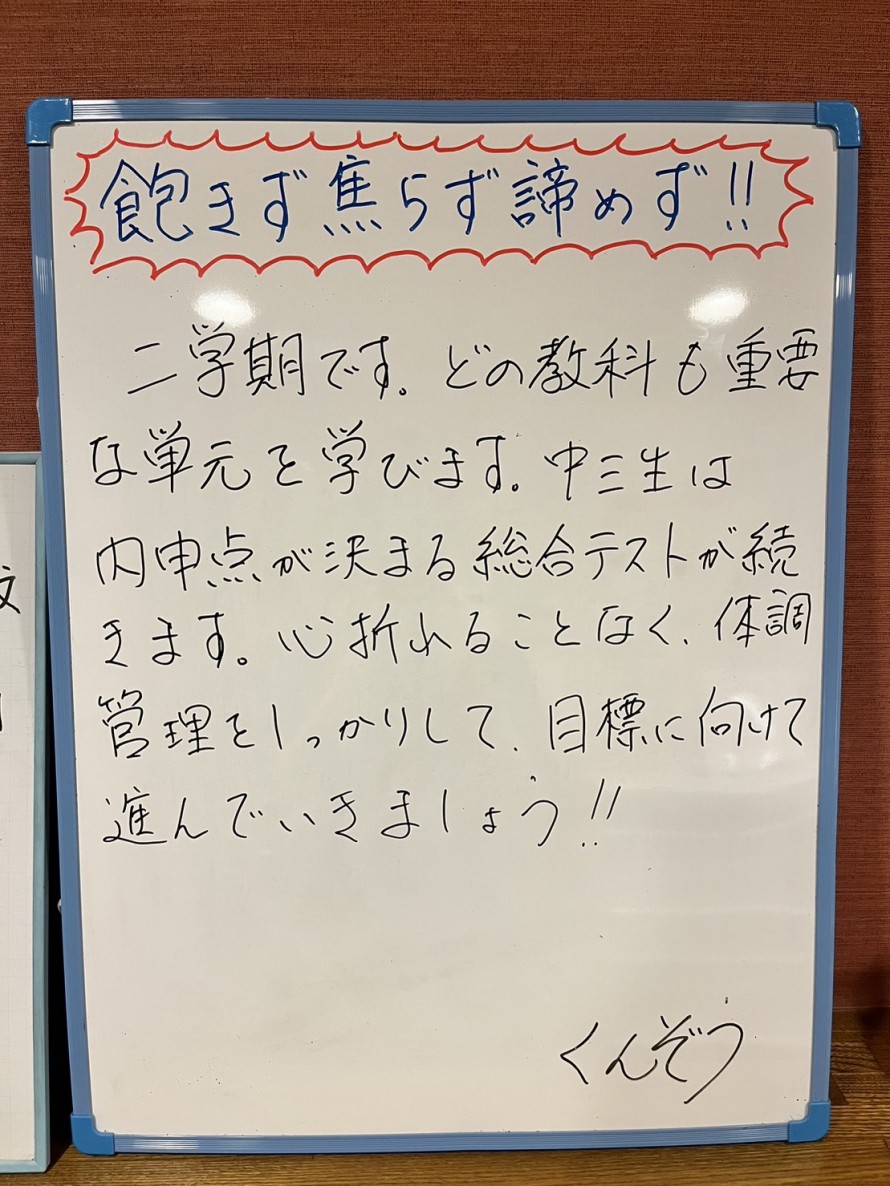 飽きず焦らず諦めず!!
二学期です。どの教科も重要
な単元を学びます。中三生は
内申点が決まる総合テストが続
きます。心折れることなく、体調
管理をしっかりして、目標に向けて
進んでいきましょう!!
くんぞう